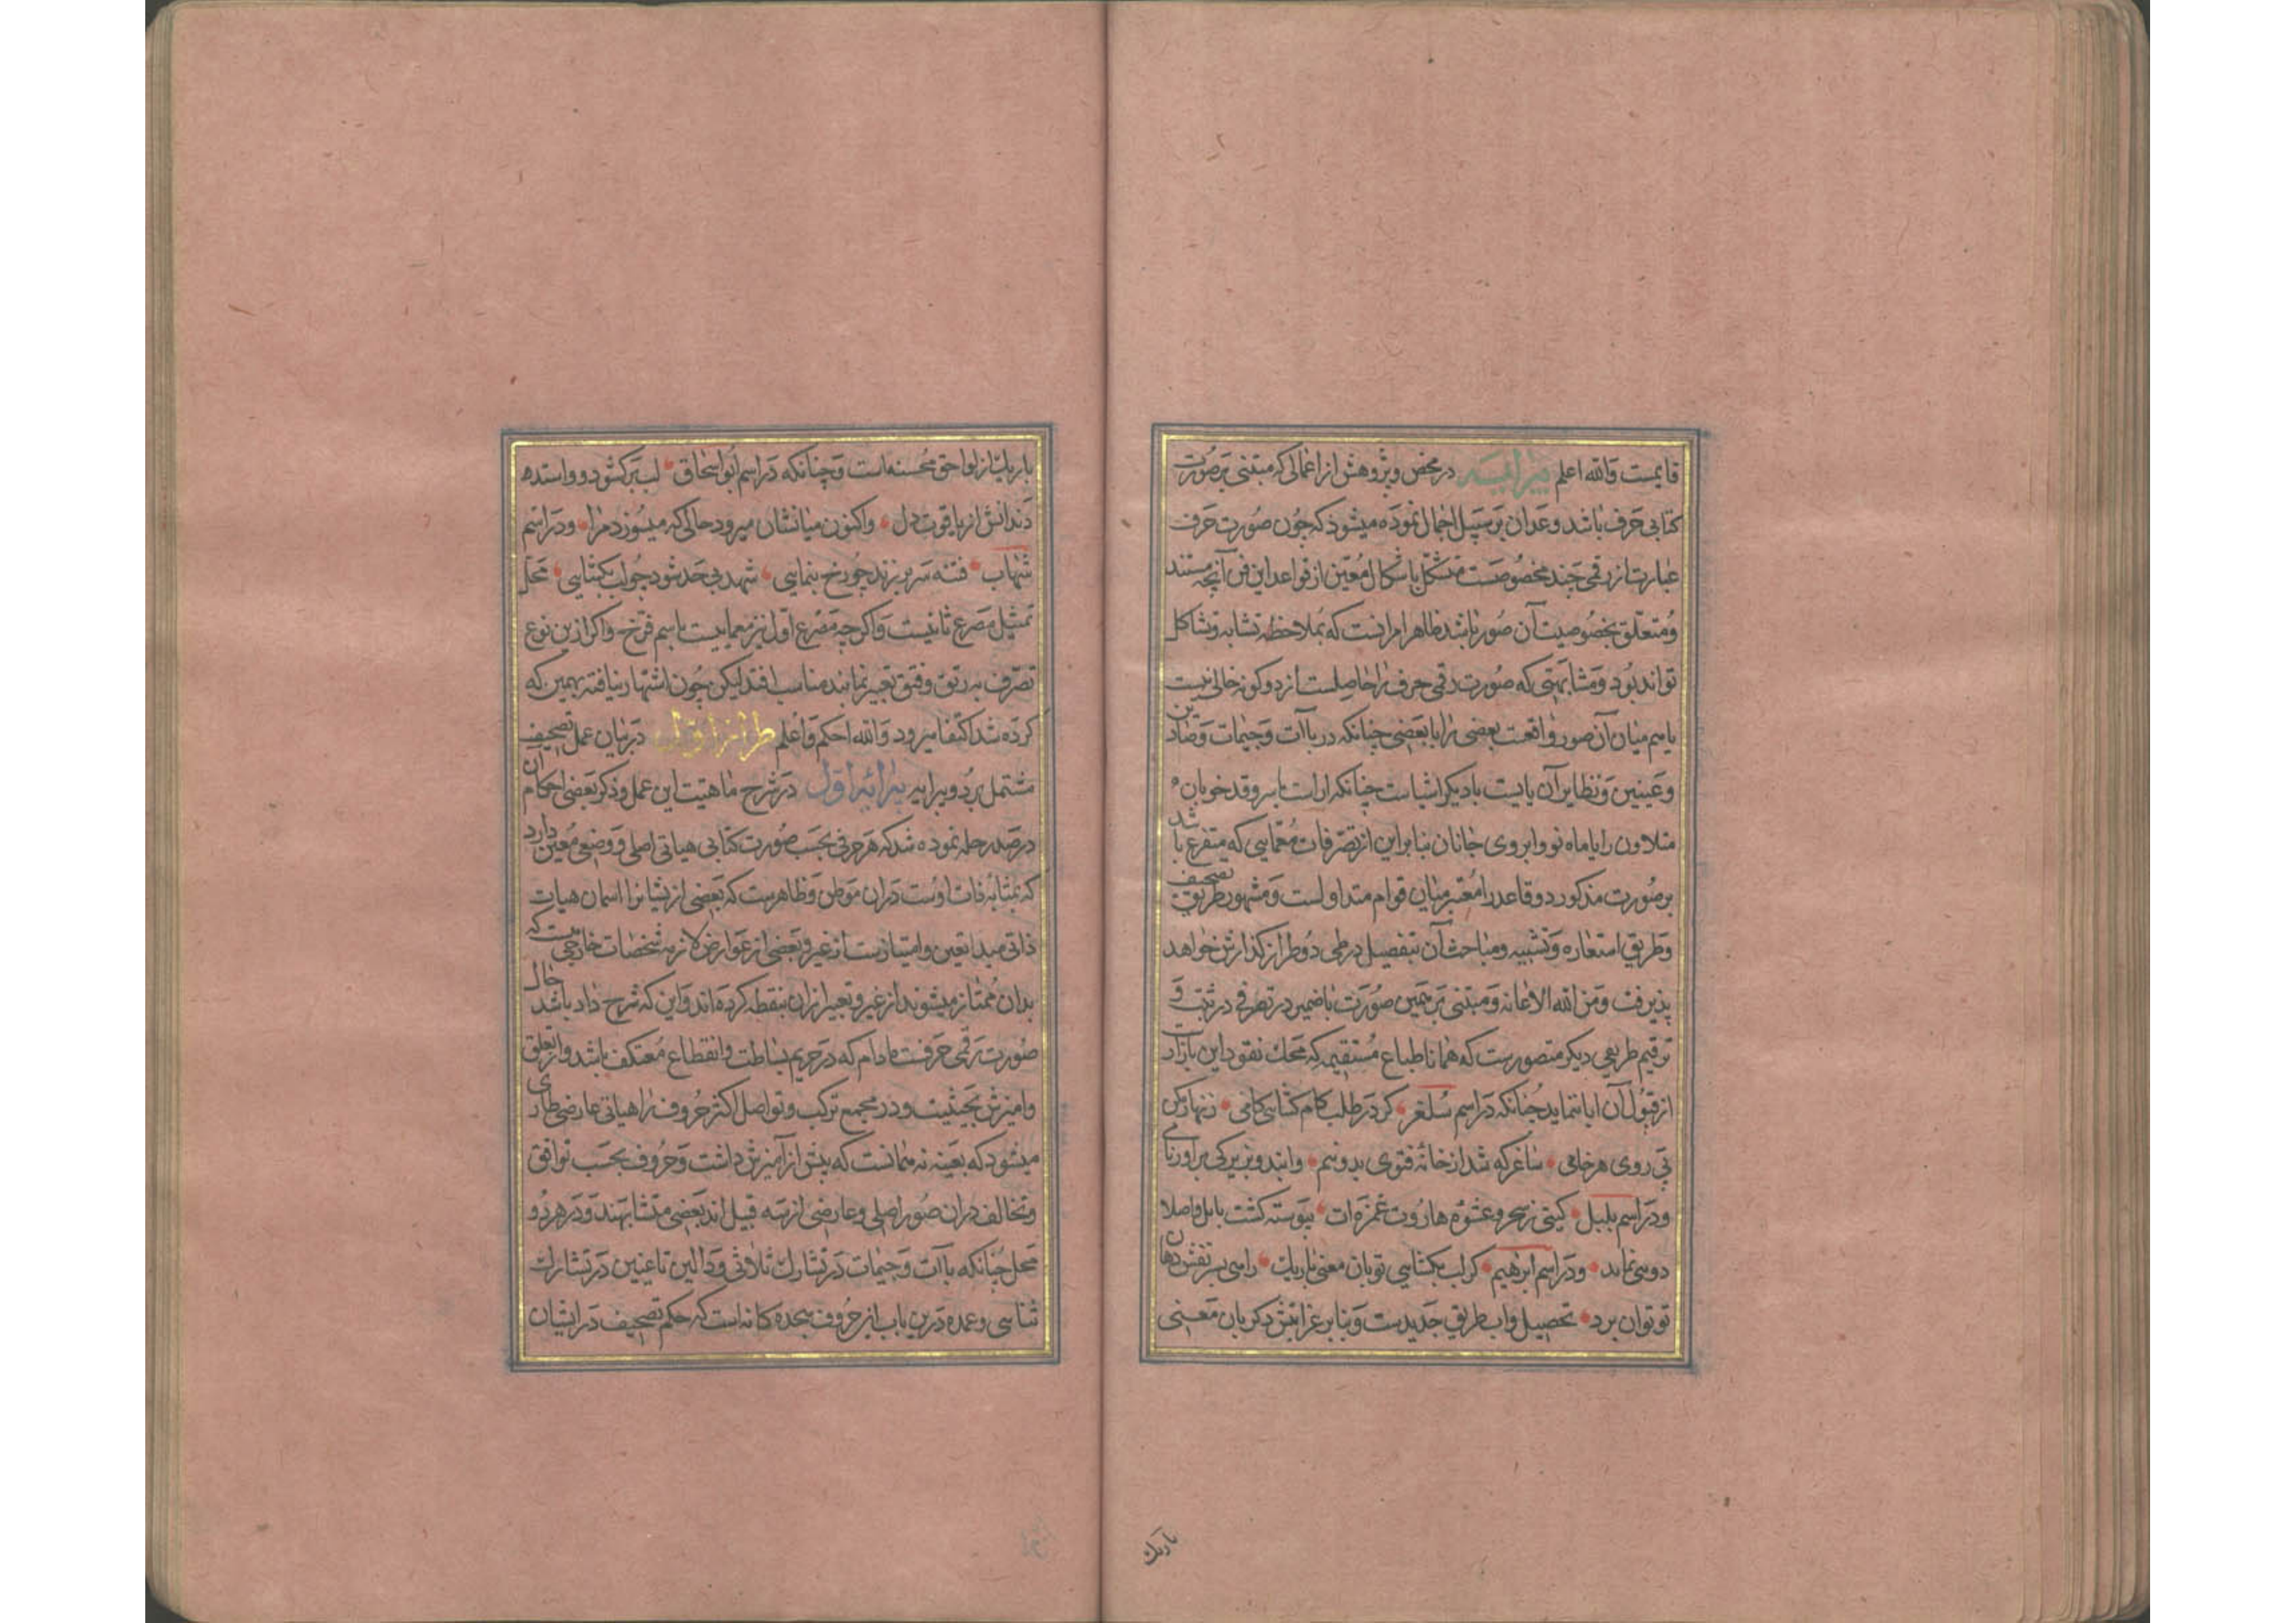 قایمست والله اعلم پیرایه در محض و پژوهش از اعمالی که مبتنی بر صورت
کتابی حرف باشد و عدان بر سبیل اجمال نموده میشود که چون صورت حرف
عبارت از رقمی چند مخصوصست متشکل باشکال معین از قواعد این فن آنچه مستند
و متعلق بخصوصیت آن صور باشد ظاهرا مرانست که بملاحظه تشابه و تشاکل
تواند بود و مشابهتی که صورت رقمی حرف را حاصلست از دو کونه خالی نیست
یا هم میان آن صور واقعست بعضی را با بعضی چنانکه در باآت و جیمات و صادین
و عینین و نظایر آن یا بیست با دیکر اشیاست چنانکه ا راست با سرو قد خوبان ه
مثلا و ن را با ماه نو و ابروی جانان بنابراین از تصرفات معمایی که متفرع باشد
بر صورت مذکور دو قاعده را معتبر میان قوام متداولست و مشهور طریق تصحیف
و طریق استعاره و تشبیه و مباحث آن بتفصیل در طی دو طراز کذارش خواهد
پذیرفت و من الله الاعانه و مبتنی بر همین صورت باضمیر در تصرفی در ثبت و
ترقیم طریقی دیکر متصورست که همانا طباع مستقیمه که محک نقود این بازارست
از قبول آن ابا ننماید چنانکه در اسم سلغر کر در طلب کام کشایی کامی زنهار مکن
پی روی هر خامی ساغر که شد از خانه فتوی بدو نیم وابند و بزیرکی برآور نامی
و در اسم بلبل کیتی ز سحر و عشوه هاروت غمزه ات پیوسته کشت بابل و اصلا
دو سی نماید و در اسم ابرهیم کر لب بکشایی تو بان معنی باریک را می بسر نقش دهان
تو توان برد تحصیل و اب طریق جدیدست و بنابر غرابتش ذکر بان معنی
باریک
باریک از لواحق محسنه است و چنانکه در اسم ابو اسحاق لب بر کشود و واستده
دندانش از یاقوت دل واکنون میانشان میرود حالی که میسوزد مرا و در اسم
شهاب فتنه سر بر زند چو رخ بنمایی شهد بی حد شود چو لب بکشایی محل
تمثیل مصرع ثانیست و اکرچه مصرع اول نیز معماییست باسم فرخ و اکر ازین نوع
تصرف به رتق و فتق تعبیر نمایند مناسب افتد لیکن چون اشتهار نیافته بهمین که
کرده شد اکتفا میرود والله احکم و اعلم طراز اول در بیان عمل تصحیف
مشتمل بر دو پیرایه پیرایه اول در شرح ماهیت این عمل و ذکر بعضی احکام ان
در صدر حله نموده شد که هر حرفی بحسب صورت کتابی هیاتی اصلی و وضعی معین دارد
که بمثابه ذات اوست دران موطن و ظاهرست که بعضی از یشانرا همان هیات
ذاتی مبدا تعین و امتیازست از غیر و بعضی از عوارض لازمه مشخصات خارجی هست که
بدان ممتاز میشوند از غیر و تعبیر ازان بنقطه کرده اند و این که شرح داد باشد حال
صورت رقمی حرفست مادام که در حریم بساطت و انقطاع معتکف باشد و از تعلق
و امیزش بحیثیت و در مجمع ترکب و تواصل اکثر حروف را هیاتی عارضی طاری
میشود که بعینه نه همانست که پیش از آمیزش داشت و حروف بحسب توافق
و تخالف دران صور اصلی و عارضی از سه قبیل اند بعضی متشابهند و در هر دو
محل چنانکه باآت و جیمات در تشارک ثلاثی و دالین تا عینین در تشارک
ثنایی و عمده درین باب از حروف هجده کانه است که حکم تصحیف در ایشان